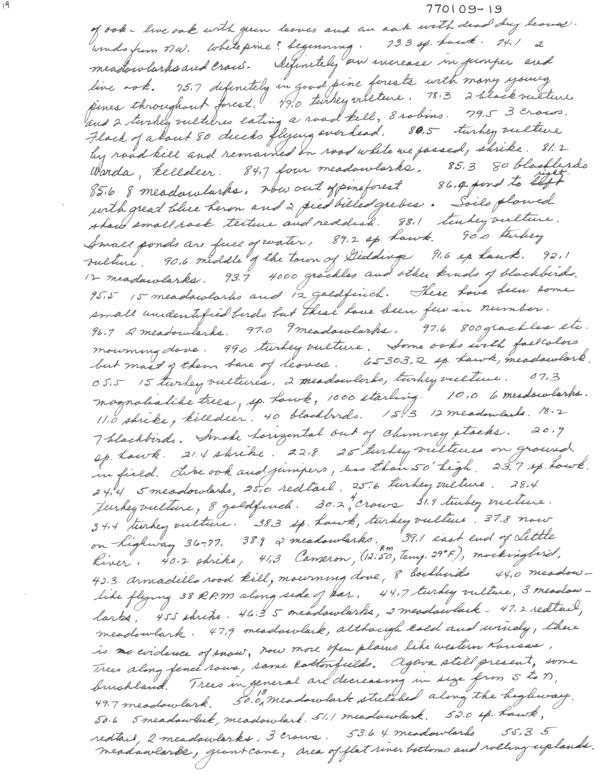 19
770109-19
of oak - live oak with green leaves and an oak with dead dry leaves.
winds from NW. White pine? beginning. 73.3 sp. hawk. 74.1 2
meadowlarks and crow. Definitely an increase in juniper and
live oak. 75.7 definitely in good pine forests with many young
pines throughout forest. 77.0 turkey vulture. 78.3 2 black vulture
and 2 turkey vultures eating a road kill, 3 robins. 79.5 3 crows.
Flock of about 80 ducks flying overhead. 80.5 turkey vulture
by road kill and remained on road while we passed, shrike. 81.2
Warda, killdeer. 84.7 four meadowlarks. 85.3 80 blackbirds
85.6 8 meadowlarks. now out of pine forest 86.9 pond to left right
with great blue heron and 2 pied billed grebes. Soils plowed
show small rock texture and reddish. 88.1 turkey vulture.
Small ponds are full of water. 89.2 sp. hawk. 90.0 turkey
vulture. 90.6 middle of the town of Giddings 91.6 sp hawk. 92.1
12 meadowlarks. 93.7 4000 grackles and other kinds of blackbirds.
95.5 15 meadowlarks and 12 goldfinch. There have been some
small unidentified birds but these have been few in number.
96.7 2 meadowlarks. 97.0 9 meadowlarks. 97.6 800 grackles etc.
mourning dove. 99.0 turkey vulture. Some oaks with fall colors
but most of them bare of leaves. 65303.2 sp. hawk, meadowlark.
05.5 15 turkey vultures. 2 meadowlarks, turkey vulture. 07.3
magnolialike trees, sp. hawk, 1000 starling. 10.0 6 meadowlarks.
11.0 shrike, killdeer. 40 blackbirds. 15.3 12 meadowlarks. 18.2
7 blackbirds. Smoke horizontal out of chimney stacks. 20.9
sp. hawk. 21.4 shrike. 22.8 25 turkey vultures on ground
in field. Live oak and junipers, less than 50' high. 23.7 sp. hawk.
24.4 5 meadowlarks, 25.0 redtail. 25.6 turkey vulture. 28.4
turkey vulture, 8 goldfinch. 30.2 4 crows 31.9 turkey vulture.
34.4 turkey vulture. 38.3 sp. hawk, turkey vulture. 37.8 now
on highway 36-77. 38.9 2 meadowlarks. 39.1 east end of Little
River. 40.2 shrike, 41.3 Cameron, (12:50 PM, temp. 29°F), mockingbird,
42.3 armadillo road kill, mourning dove, 8 blackbirds 44.0 meadow-
lark flying 38 R.P.M along side of car. 44.7 turkey vulture, 3 meadow-
larks, 45.5 shrike. 46.3 5 meadowlarks, 2 meadowlark - 47.2 redtail,
meadowlark. 47.9 meadowlark, although cold and windy, there
is no evidence of snow, now more open plains like western Kansas,
Trees along fence rows, some cottonfields. Agava still present, some
brushland. Trees in general are decreasing in size from S to N.
49.7 meadowlark. 50.0 18 meadowlark stretched along the highway.
50.6 5 meadowlark, meadowlark. 51.1 meadowlark. 52.0 sp. hawk,
redtail, 2 meadowlarks, 3 crows. 53.6 4 meadowlarks 55.3 5
meadowlarks, giant cane, area of flat river bottoms and rolling uplands.